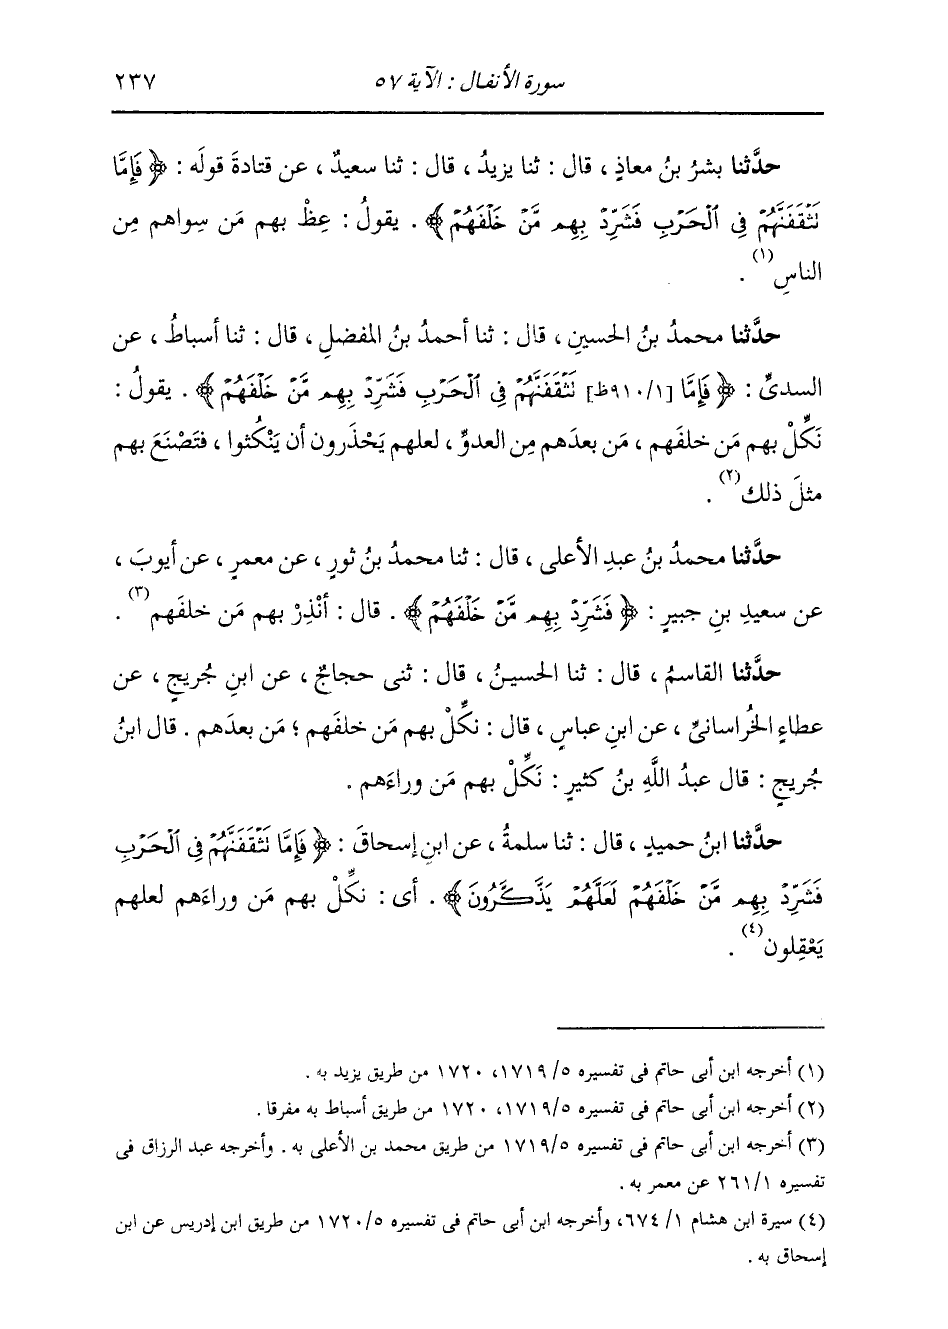 سورة الأنفال : الآية ٥٧ ٢٣٧
حدَّثنا بشرُ بنُ معاذٍ ، قال : ثنا يزيدُ ، قال : ثنا سعيدٌ ، عن قتادةَ قولَه : ﴿ فَإِمَّا
نَثْقَفَنَّهُمْ فِي الْحَرْبِ فَشَرِّدْ بِهِم مَّنْ خَلْفَهُمْ ﴾ . يقولُ : عِظْ بهم مَن سِواهم مِن
الناسِ (١) .
حدَّثنا محمدُ بنُ الحسينِ ، قال : ثنا أحمدُ بنُ المفضلِ ، قال : ثنا أسباطُ ، عن
السدىِّ : ﴿ فَإِمَّا [٩١٠/١ظ] نَثْقَفَنَّهُمْ فِي الْحَرْبِ فَشَرِّدْ بِهِم مَّنْ خَلْفَهُمْ ﴾ . يقولُ :
نَكِّلْ بهم مَن خلفَهم ، مَن بعدَهم مِن العدوِّ ، لعلهم يَحْذَرون أن يَنْكُثوا ، فتَصْنَعَ بهم
مثلَ ذلك (٢) .
حدَّثنا محمدُ بنُ عبدِ الأعلى ، قال : ثنا محمدُ بنُ ثورٍ ، عن معمرٍ ، عن أيوبَ ،
عن سعيدِ بنِ جبيرٍ : ﴿ فَشَرِّدْ بِهِم مَّنْ خَلْفَهُمْ ﴾ . قال : أنْذِرْ بهم مَن خلفَهم (٣) .
حدَّثنا القاسمُ ، قال : ثنا الحسينُ ، قال : ثنى حجاجٌ ، عن ابنِ جُريجٍ ، عن
عطاءٍ الخُراسانىِّ ، عن ابنِ عباسٍ ، قال : نكِّلْ بهم مَن خلفَهم ؛ مَن بعدَهم . قال ابنُ
جُريجٍ : قال عبدُ اللَّهِ بنُ كثيرٍ : نَكِّلْ بهم مَن وراءَهم .
حدَّثنا ابنُ حميدٍ ، قال : ثنا سلمةُ ، عن ابنِ إسحاقَ : ﴿ فَإِمَّا نَثْقَفَنَّهُمْ فِي الْحَرْبِ
فَشَرِّدْ بِهِم مَّنْ خَلْفَهُمْ لَعَلَّهُمْ يَذَّكَّرُونَ ﴾ . أى : نكِّلْ بهم مَن وراءَهم لعلهم
يَعْقِلون (٤) .
(١) أخرجه ابن أبى حاتم فى تفسيره ١٧١٩/٥، ١٧٢٠ من طريق يزيد به .
(٢) أخرجه ابن أبى حاتم فى تفسيره ١٧١٩/٥، ١٧٢٠ من طريق أسباط به مفرقا .
(٣) أخرجه ابن أبى حاتم فى تفسيره ١٧١٩/٥ من طريق محمد بن الأعلى به . وأخرجه عبد الرزاق فى
تفسيره ٢٦١/١ عن معمر به .
(٤) سيرة ابن هشام ١/ ٦٧٤، وأخرجه ابن أبى حاتم فى تفسيره ١٧٢٠/٥ من طريق ابن إدريس عن ابن
إسحاق به .